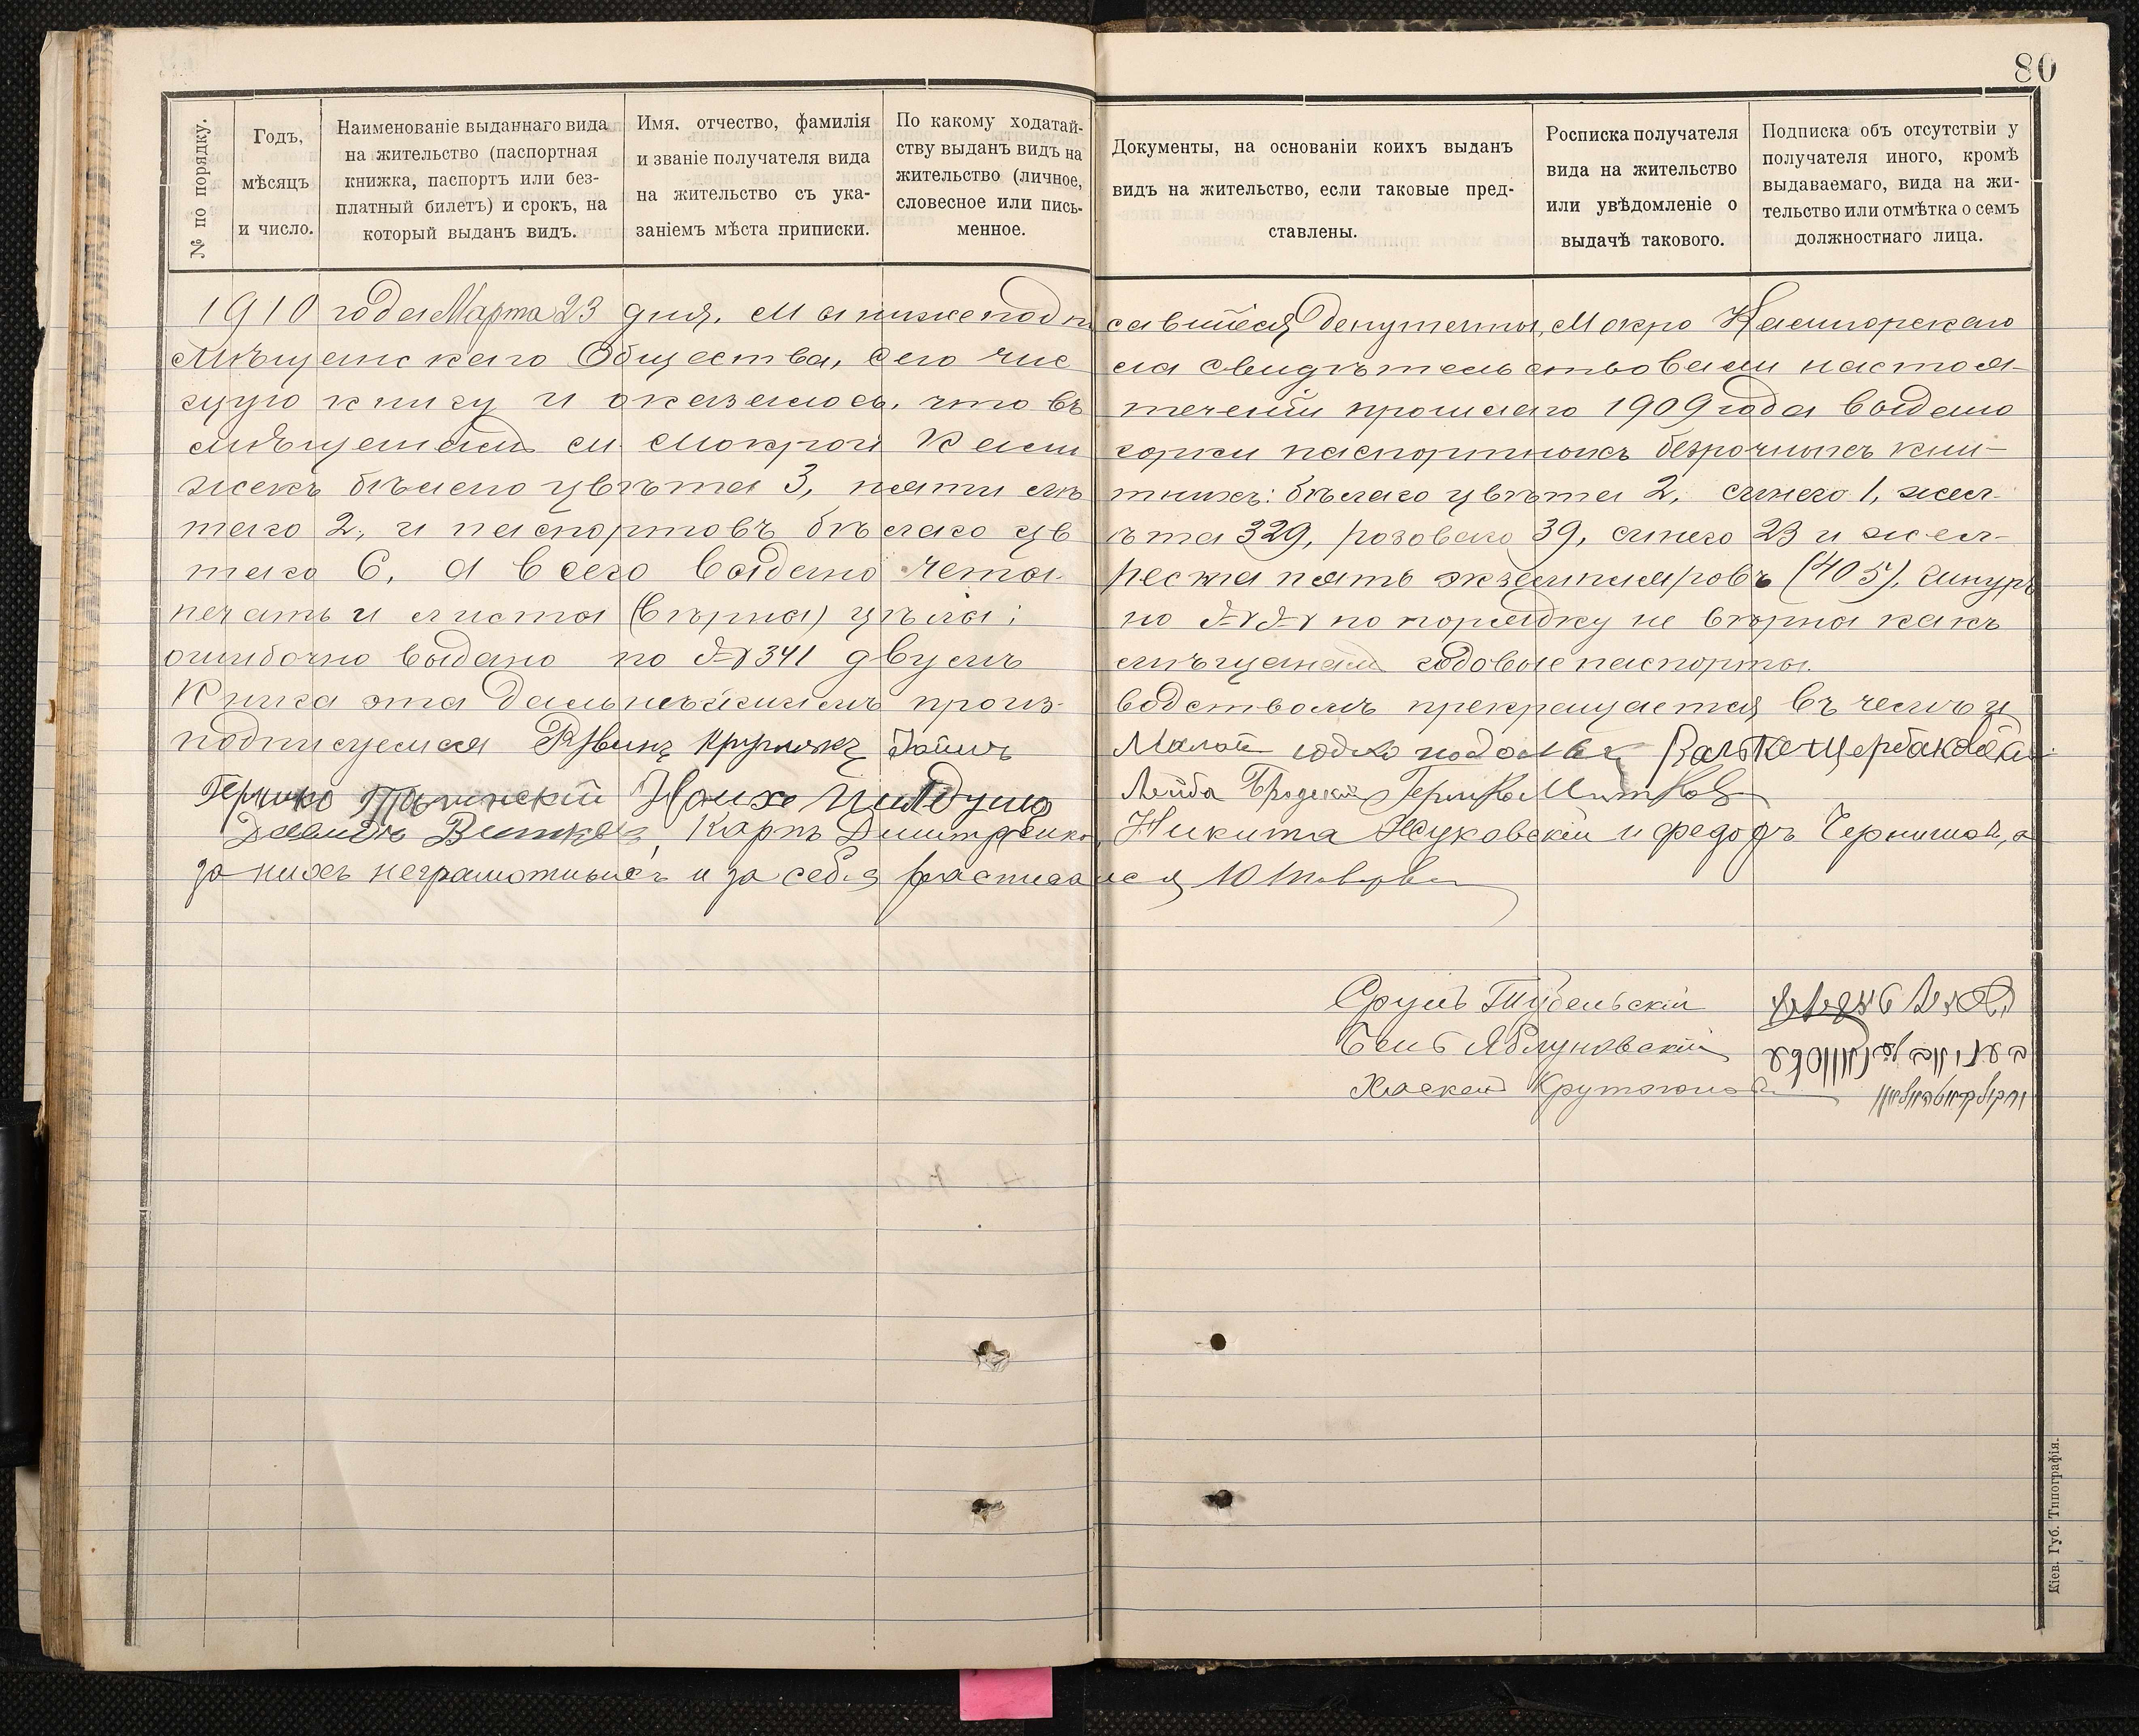 80
№ по порядку.
Годъ,
мѣсяцъ
и число.
Наименованіе выданнаго вида
на жительство (паспортная
книжка, паспортъ или без-
платный билетъ) и срокъ, на
который выданъ видъ.
Имя, отчество, фамилія
и званіе получателя вида
на жительство съ ука-
заніемъ мѣста приписки.
По какому ходатай-
ству выданъ видъ на
жительство (личное,
словесное или пись-
менное.
Документы, на основаніи коихъ выданъ
видъ на жительство, если таковые пред-
ставлены.
Росписка получателя
вида на жительство
или увѣдомленіе о
выдачѣ такового.
Подписка объ отсутствіи у
получателя иного, кромѣ
выдаваемаго, вида на жи-
тельство или отмѣтка о семъ
должностнаго лица.
1910 года Марта 23 дня. Мы нижеподписавшіеся Депутаты, Мокро Калигорскаго
Мѣщанскаго Общества, сего числа свидѣтельствовали настоя-
щую книгу и оказалось, что въ теченіи прошлаго 1909 года выдано
мѣщанам м. Мокрой Калигорки паспортныхъ безрочныхъ кни-
жекъ бѣлаго цвѣта 3, пятилѣтнихъ: бѣлаго цвѣта 2, синего 1, жел-
таго 2, и паспортовъ бѣлаго цвѣта 329, розоваго 39, синего 23 и жел-
таго 6, а всего выдано четыреста пять экземпляровъ (405), шнуръ
печать и листы (вѣрны) цѣлы;
но №№ по порядку не вѣрны какъ
ошибочно выдано по № 341 двумъ мѣщанам годовые паспорты.
Книга эта дальнѣйшимъ произ-
водствомъ прекращается въ чемъ и
подписуемся
Гершко Тальнскій
Лейба Бродскій Гершко
Карпъ Дмитренко, Никита Жуковскій и Федоръ Чернишой, а
за нихъ неграмотныхъ и за себя расписался
Срулъ
Яблуновскій
Кіев. Губ. Типографія.